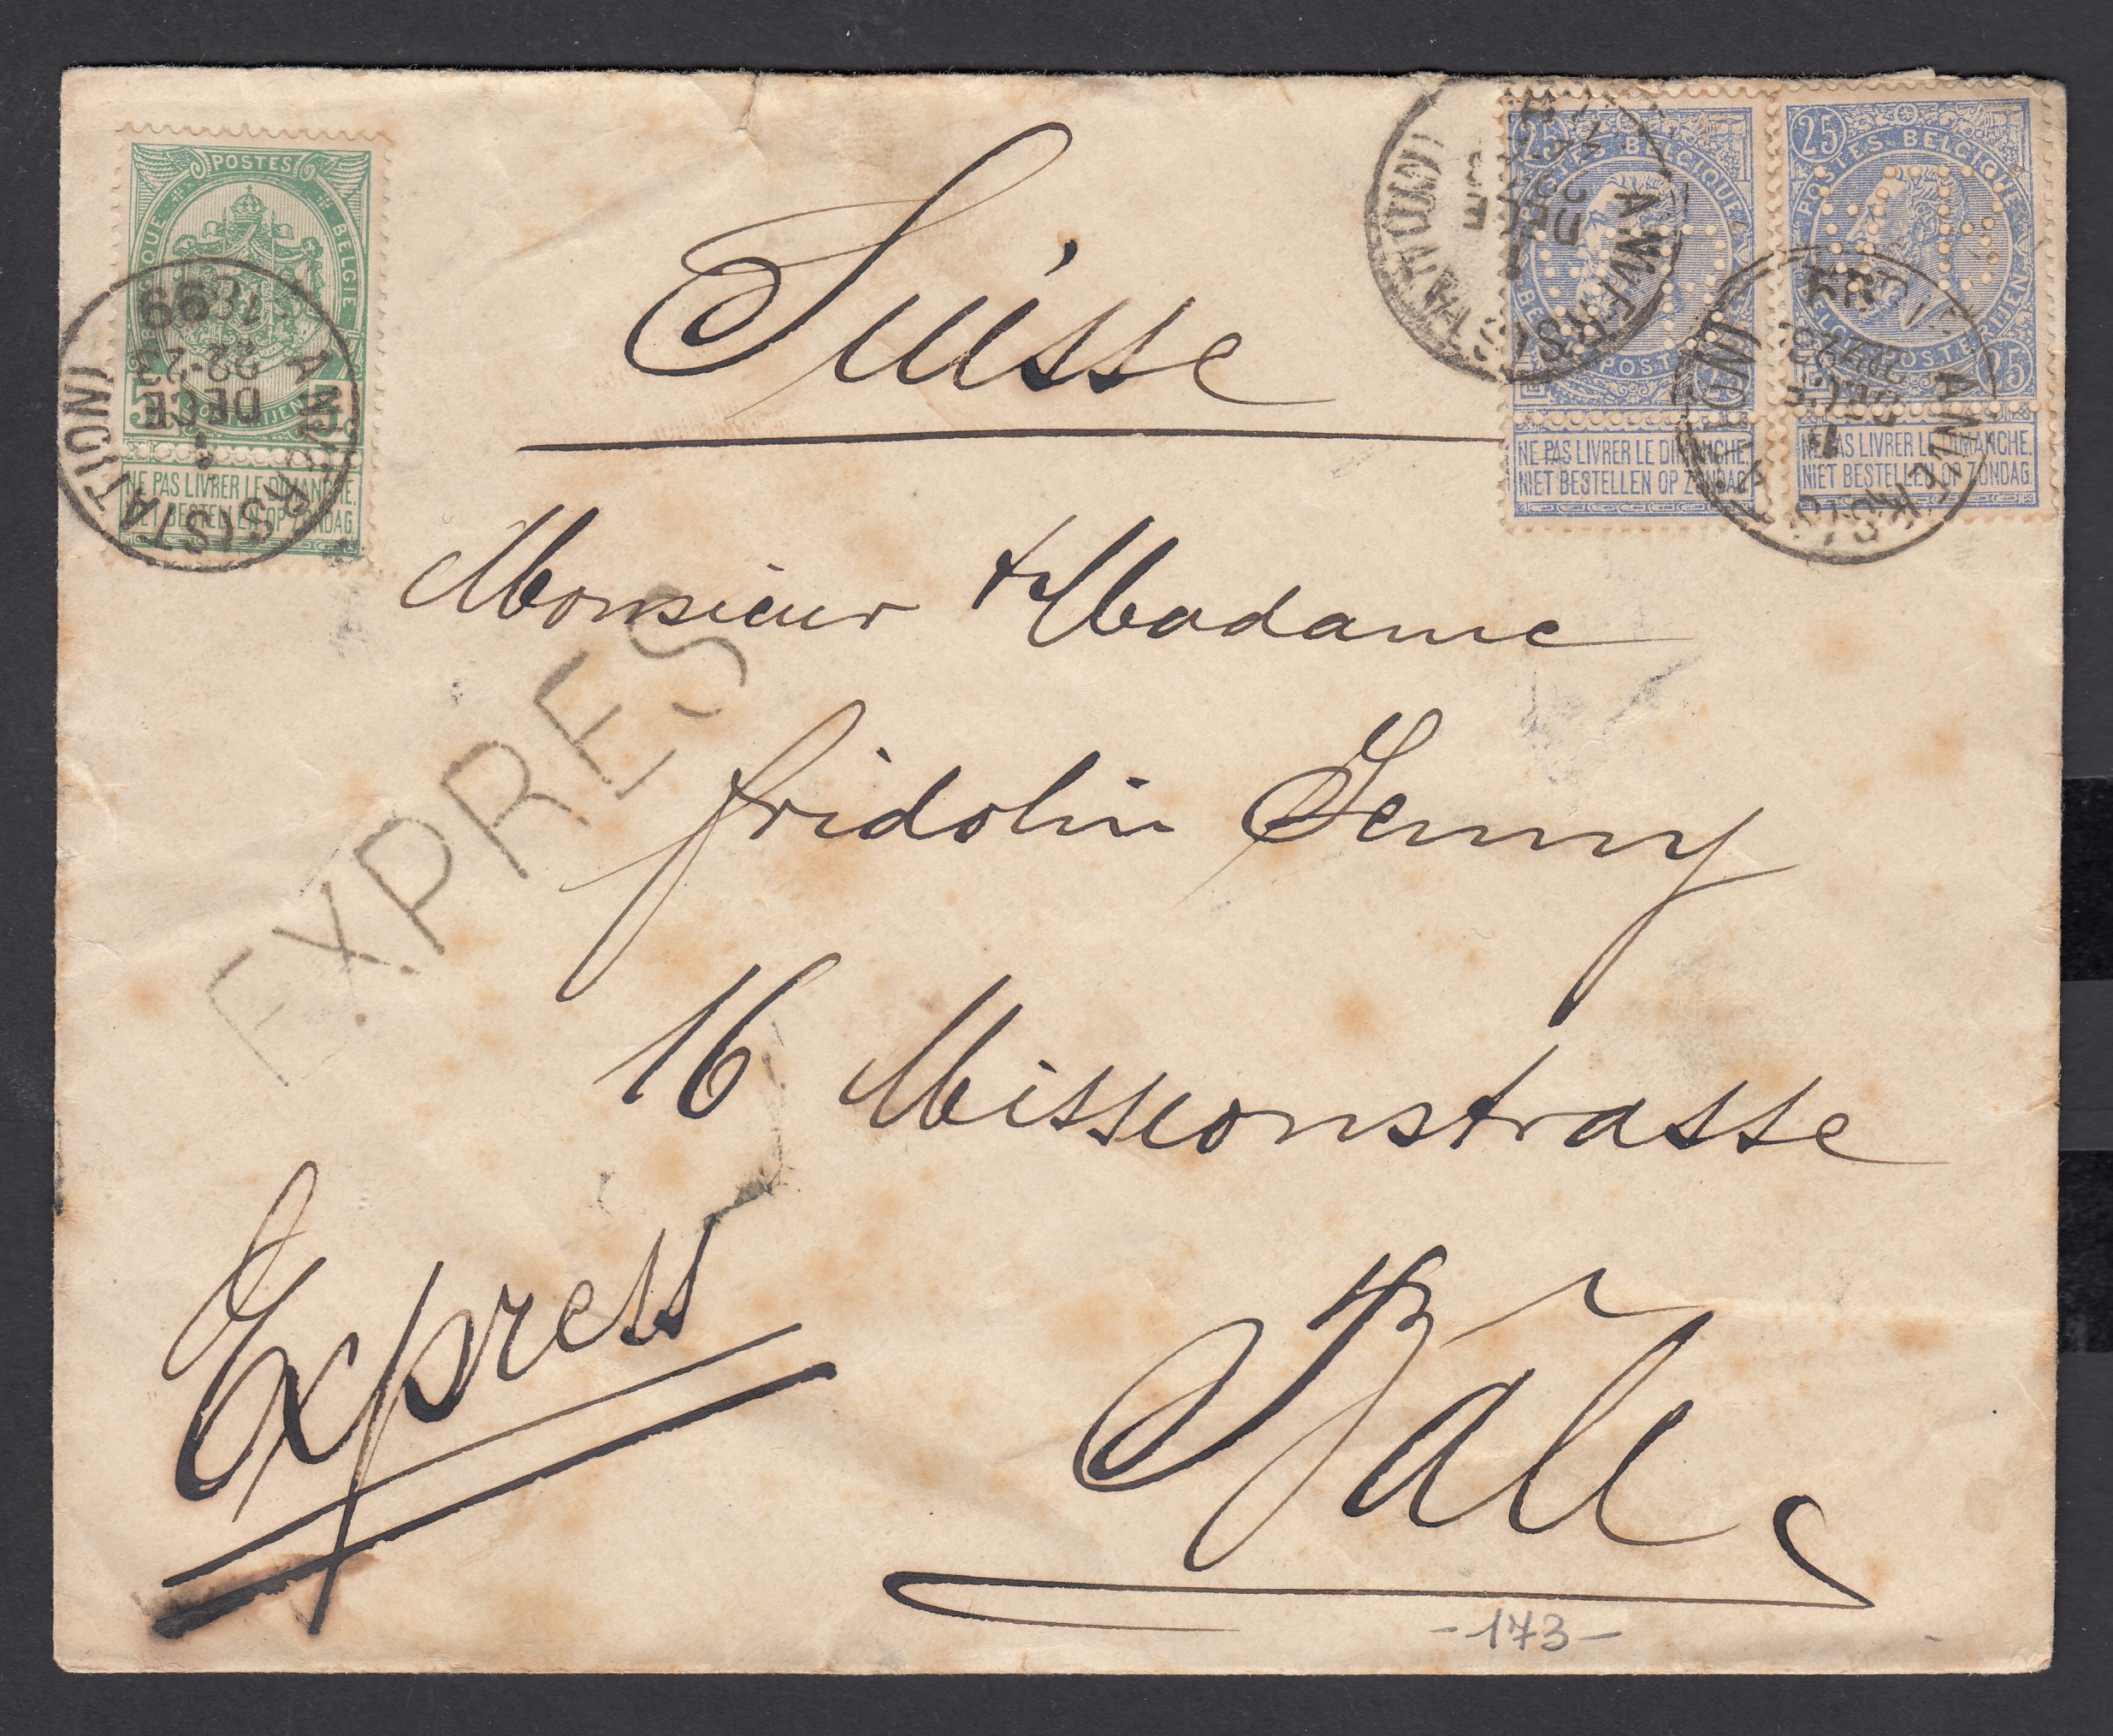 POSTES
BELGIQUE BELGIE
5 5
POSTERIJEN
NE PAS LIVRER LE DIMANCHE.
NIET BESTELLEN OP ZONDAG.
ANVERS (STATION)
DECE
22-23
99
25
POSTES BELGIQUE
BELGIE POSTERIJEN
NE PAS LIVRER LE DIMANCHE.
NIET BESTELLEN OP ZONDAG.
ANVERS (STATION)
25
POSTES BELGIQUE
BELGIE POSTERIJEN
25
NE PAS LIVRER LE DIMANCHE.
NIET BESTELLEN OP ZONDAG.
ANVERS (STATION)
Suisse
Monsieur & Madame
fridolin Jenny
16 Missionstrasse
Bâle
EXPRES
Express
-173-